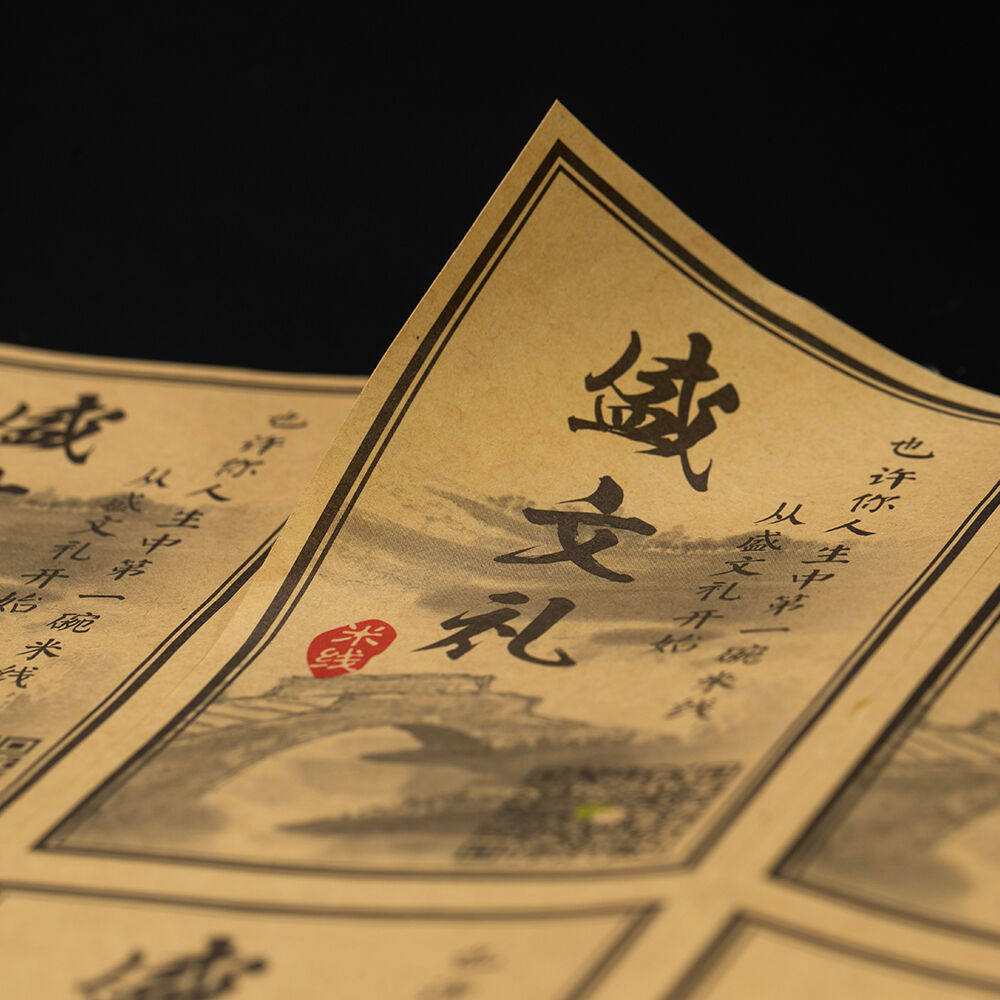 盛文礼
米线
也许你人生中第一碗米线
从盛文礼开始
盛
也许你人生中第一碗米线
从盛文礼开始
盛